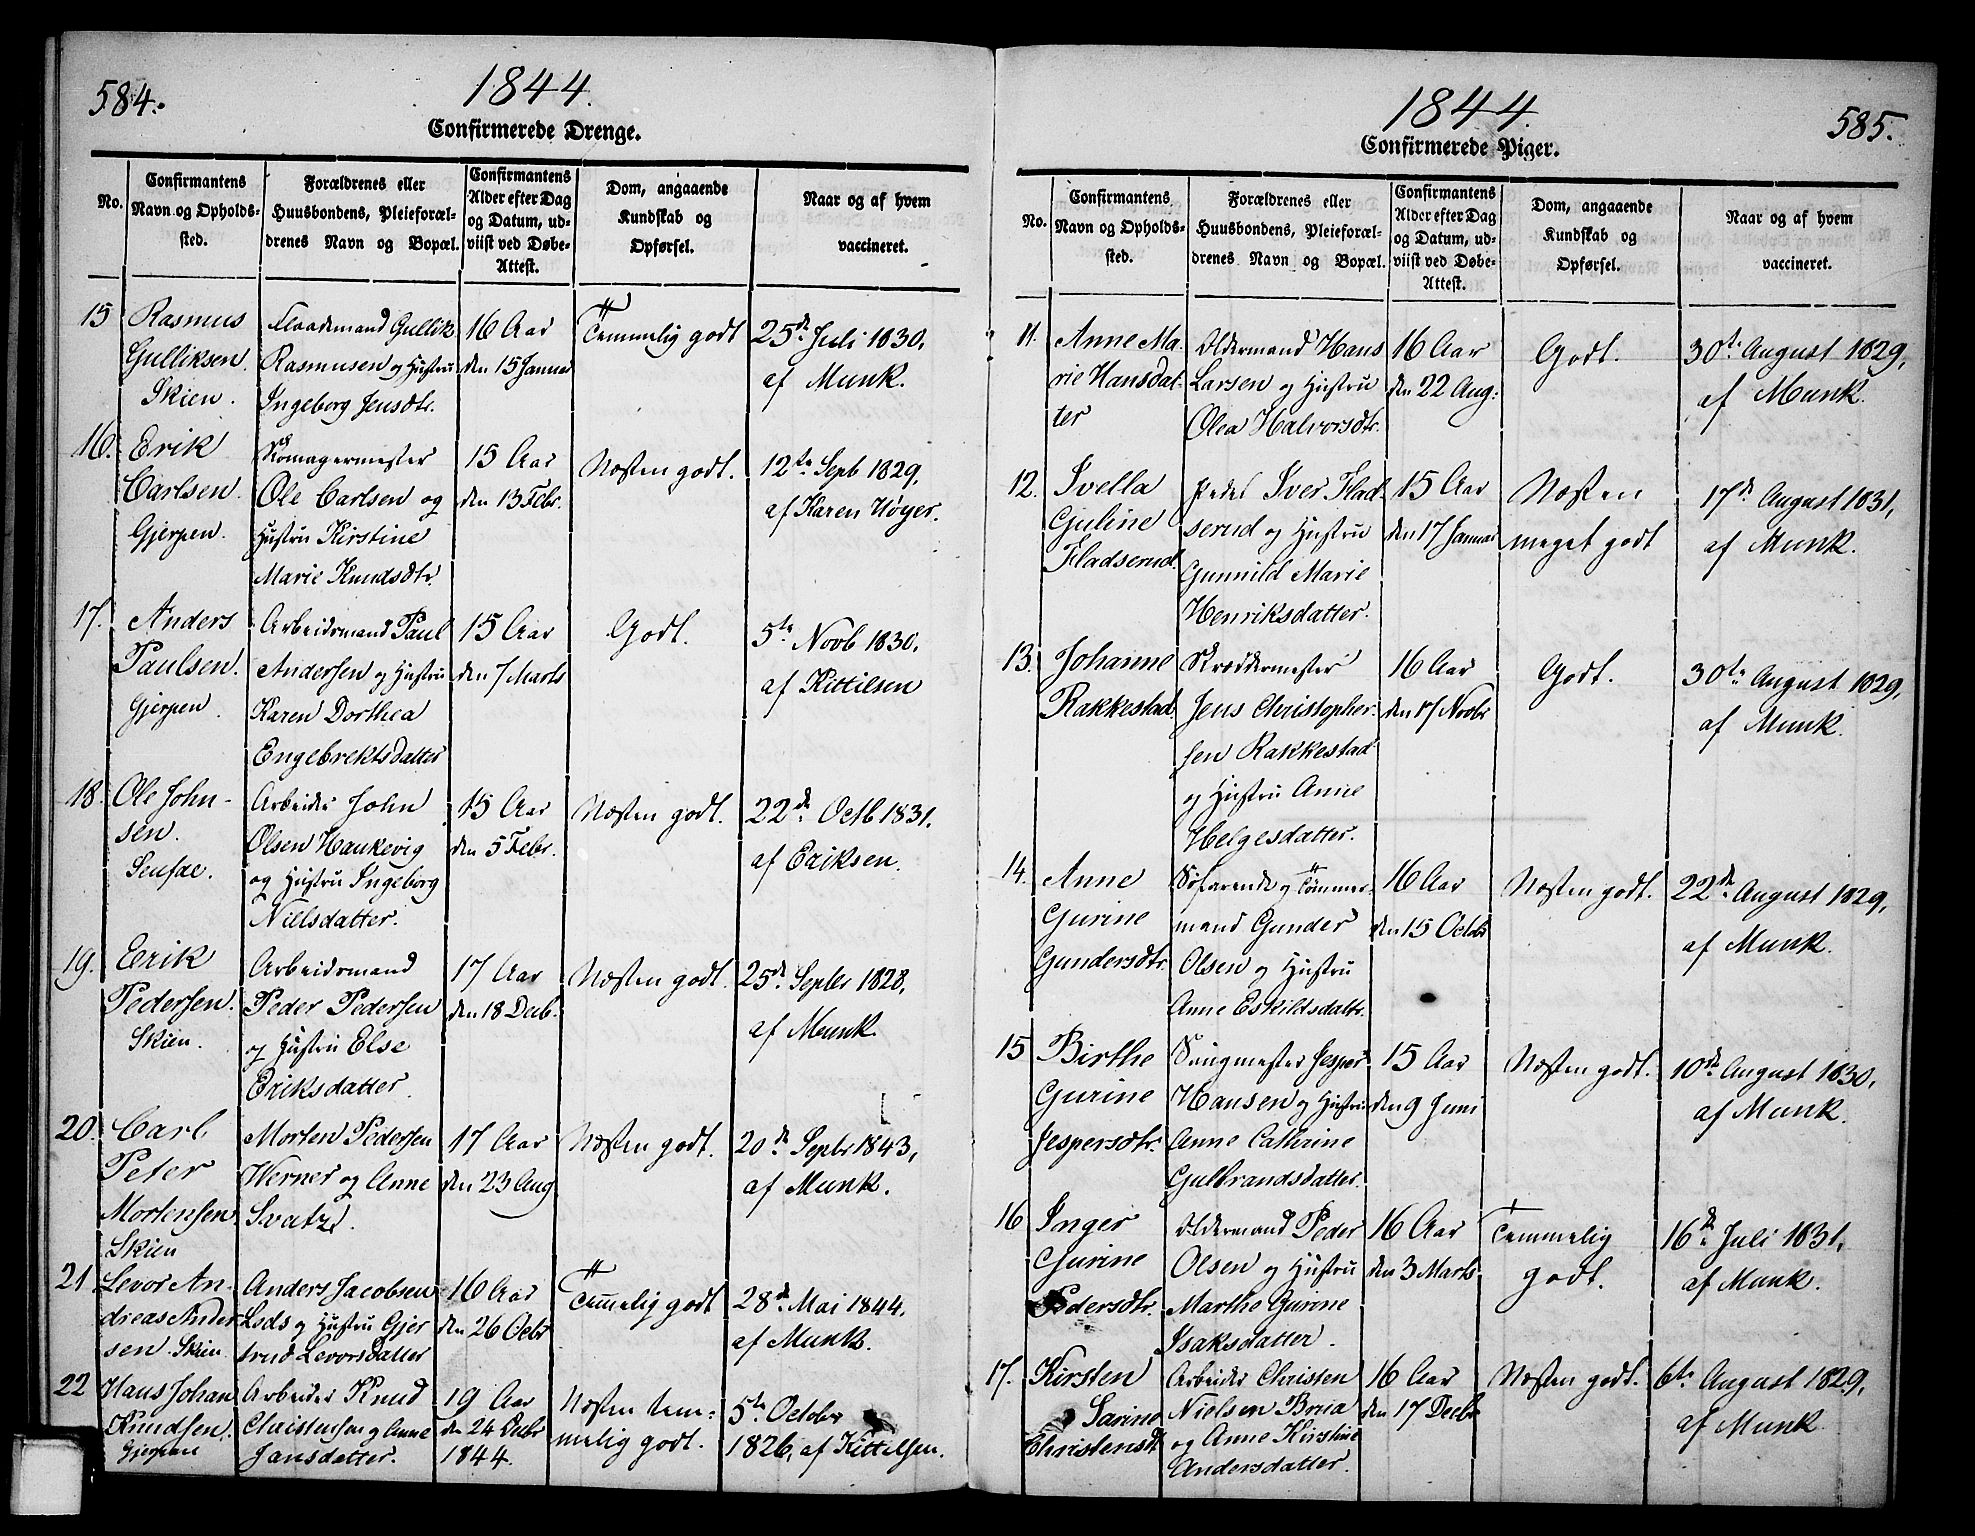 584.
1844.
Confirmerede Drenge.
No.
Confirmantens
Navn og Opholds-
sted.
Forældrenes eller
Huusbondens, Pleieforæl-
drenes Navn og Bopæl.
Confirmantens
Alder efter Dag
og Datum, ud-
viist ved Døbe-
Attest.
Dom, angaaende
Kundskab og
Opførsel.
Naar og af hvem
vaccineret.
15
Rasmus
Gulliksen.
Skien.
Gullik
Rasmusen og Hustru
Ingeborg Jensdtr.
16 Aar
den 15 Januar
Temmelig godt
25de Juli 1830,
af Munk.
16.
Erik
Carlsen.
Gjerpen.
Skomagermester
Ole Carlsen og
Hustru Kirstine
Marie Knudsdtr.
15 Aar
den 13 Febr.
Næsten godt.
12te Sept 1829,
af Karen Høyer.
17.
Anders
Paulsen.
Gjerpen.
Arbeidsmand Paul
Andersen og Hustru
Karen Dorthea
Engebrektsdatter
15 Aar
den 7 Marts
Godt.
5te Novb 1830,
af Kittilsen
18.
Ole John-
sen.
Arbeider John
Olsen Haukevig
og Hustru Ingeborg
Nielsdatter.
15 Aar
den 5 Febr.
Næsten godt.
22de Octb 1831.
af Eriksen.
19.
Erik
Pedersen.
Skien.
Arbeidsmand
Peder Pedersen
og Hustru Else
Eriksdatter.
17 Aar
den 18 Decb.
Næsten godt.
25de Septbr 1828,
af Munk.
20.
Carl
Peter
Mortensen
Skien
Morten Pedersen
Werner og Anne
17 Aar
den 23 Aug
Næsten godt.
20de Septbr 1843,
af Munk.
21
Levor An-
dreas Ander
sen. Skien
Anders Jacobsen
og Hustru Gjer
trud Levorsdatter
16 Aar
den 26 Octbr
Temmelig godt
28de Mai 1844,
af Munk.
22
Hans Johan
Knudsen.
Gjerpen
Arbeider Knud
Christensen og Anne
Jansdatter.
19 Aar
den 24 Decbr
1844.
Næsten tem-
melig godt.
5te October
1826, af Kittilsen.
1844.
585.
Confirmerede Piger.
No.
Confirmantens
Navn og Opholds-
sted.
Forældrenes eller
Huusbondens, Pleieforæl-
drenes Navn og Bopæl.
Confirmantens
Alder efter Dag
og Datum, ud-
viist ved Døbe-
Attest.
Dom, angaaende
Kundskab og
Opførsel.
Naar og af hvem
vaccineret.
11.
Anne Ma-
rie Hansdat-
ter
Oldermand Hans
Larsen og Hustru
Olea Halvorsdtr.
16 Aar
den 22 Aug:
Godt.
30te August 1829,
af Munk.
12.
Ivella
Guline
Fladserud.
Iver Flad-
serud og Hustru
Gunnild Marie
Henriksdatter.
15 Aar
den 17 Januar
Næsten
meget godt
17de August 1831,
af Munk.
13.
Johanne
Rakkestad.
Skreddermester
Jens Christopher-
sen Rakkestad
og Hustru Anne
Helgesdatter.
16 Aar
den 17 Novbr
Godt.
30te August 1829,
af Munk.
14.
Anne
Gurine
Gundersdtr.
Søfarende og Tømmer-
mand Gunder
Olsen og Hustru
Anne Eskildsdattr.
16 Aar
den 15 Octobr
Næsten godt.
22de August 1829,
af Munk.
15
Birthe
Gurine
Jespersdtr.
Saugmester Jesper
Hansen og Hustru
Anne Cathrine
Gulbrandsdatter.
15 Aar
den 9 Juni
Næsten godt.
10de August 1830,
af Munk.
16
Inger
Gurine
Pedersdtr.
Oldermand Peder
Olsen og Hustru
Marthe Gurine
Isaksdatter.
16 Aar
den 3 Marts
Temmelig
godt.
16de Juli 1831,
af Munk.
17.
Kirsten
Sarine
Christensdt
Arbeider Christen
Nielsen Brua
og Anne Kirstine
Andersdatter.
16 Aar
den 17 Decbr
Næsten godt.
6te August 1829,
af Munk